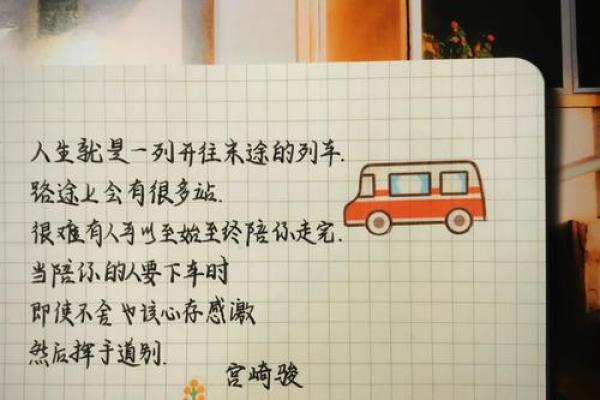 人生就是一列开往末途的列车.
路途上会有很多站.
很难有人可以至始至终陪你走完.
当陪你的人要下车时
即使不舍也该心存感激
然后挥手道别.
宫崎骏